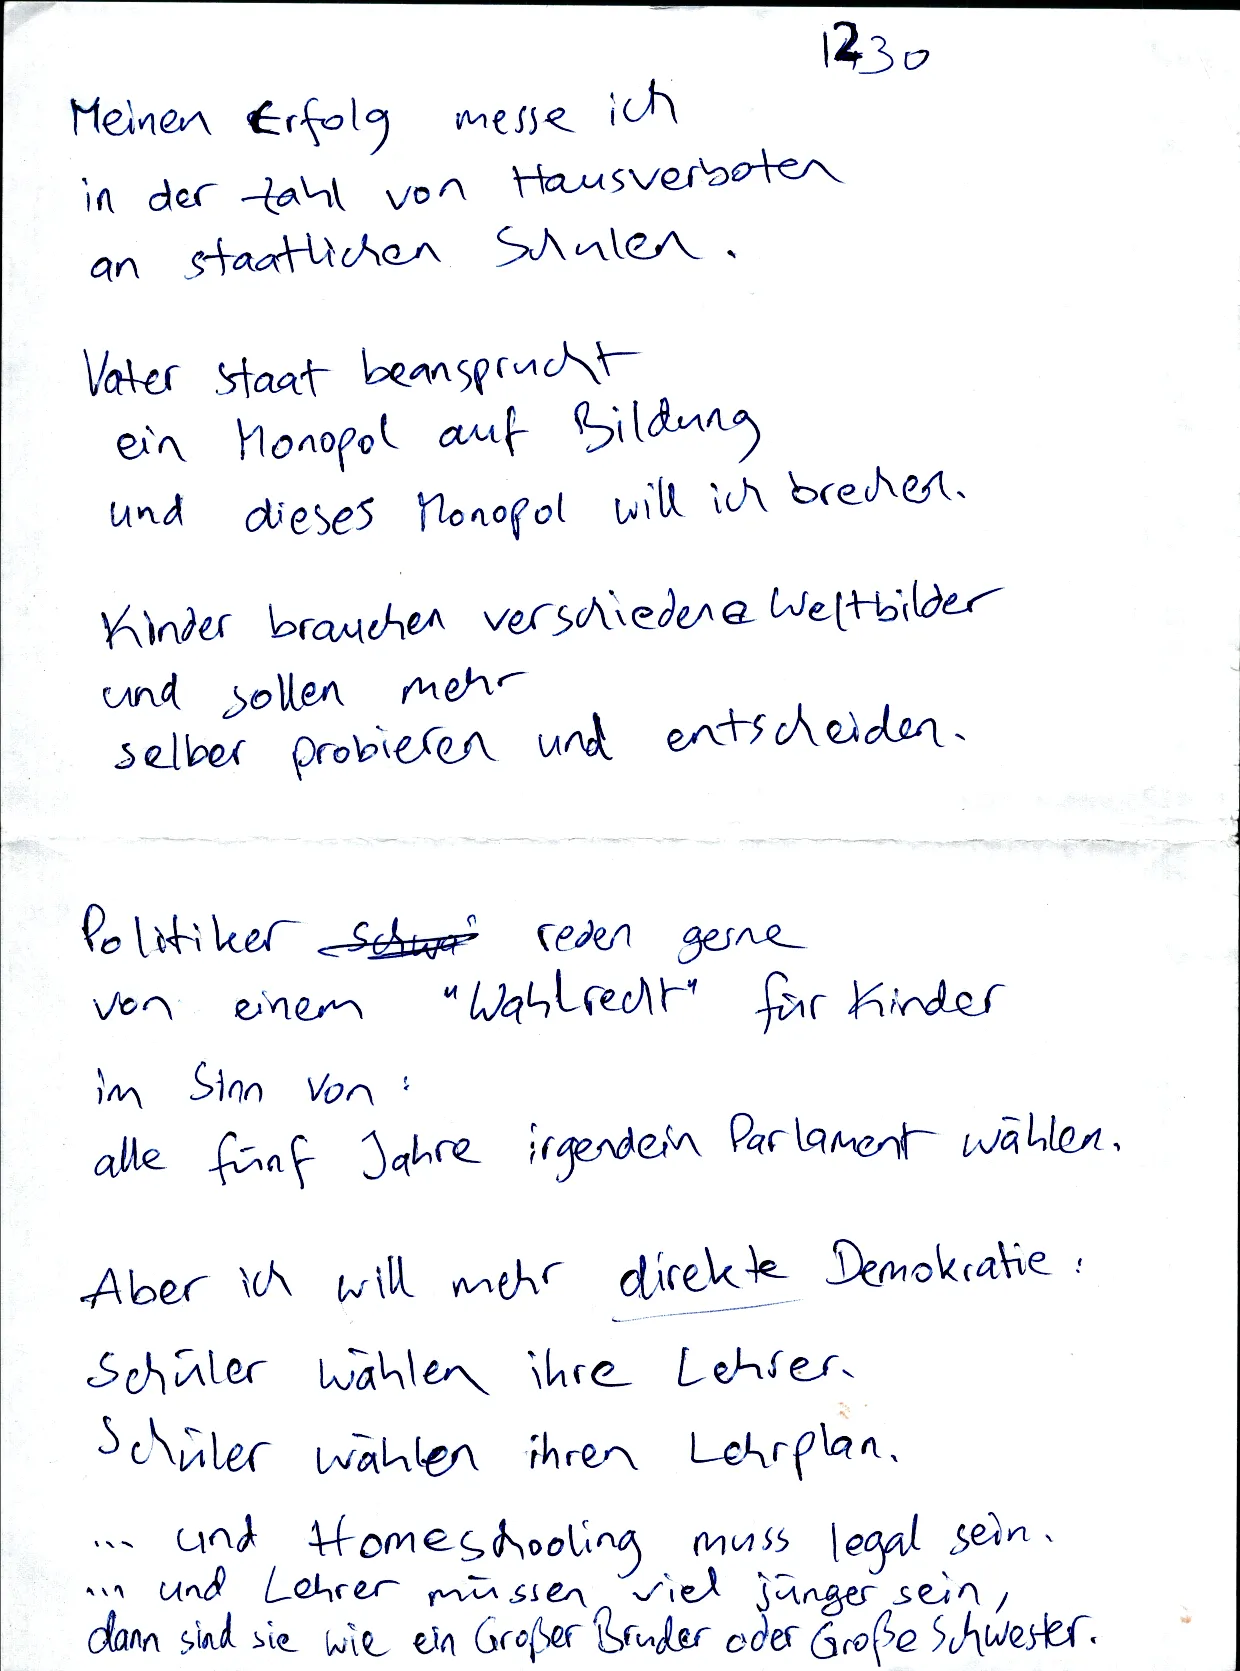 1230
Meinen Erfolg messe ich
in der Zahl von Hausverboten
an staatlichen Schulen.
Vater staat beansprucht
ein Monopol auf Bildung
und dieses Monopol will ich brechen.
Kinder brauchen verschiedene Weltbilder
und sollen mehr
selber probieren und entscheiden.
Politiker reden gerne
von einem "Wahlrecht" für Kinder
im Sinn von:
alle fünf Jahre irgendein Parlament wählen.
Aber ich will mehr direkte Demokratie:
Schüler wählen ihre Lehrer.
Schüler wählen ihren Lehrplan.
... und Homeschooling muss legal sein.
... und Lehrer müssen viel jünger sein,
dann sind sie wie ein Großer Bruder oder Große Schwester.